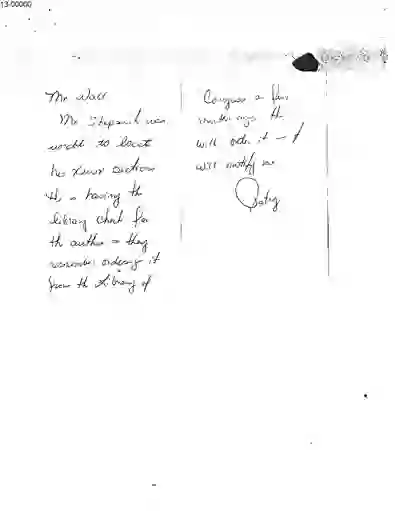 13-00000
Mr Wall
Mr was
unable to locate
his Xerox
He is having the
library check for
the author - they
remember ordering it
from the Library of
Congress a few
months ago. He
will order it - &
will notify me